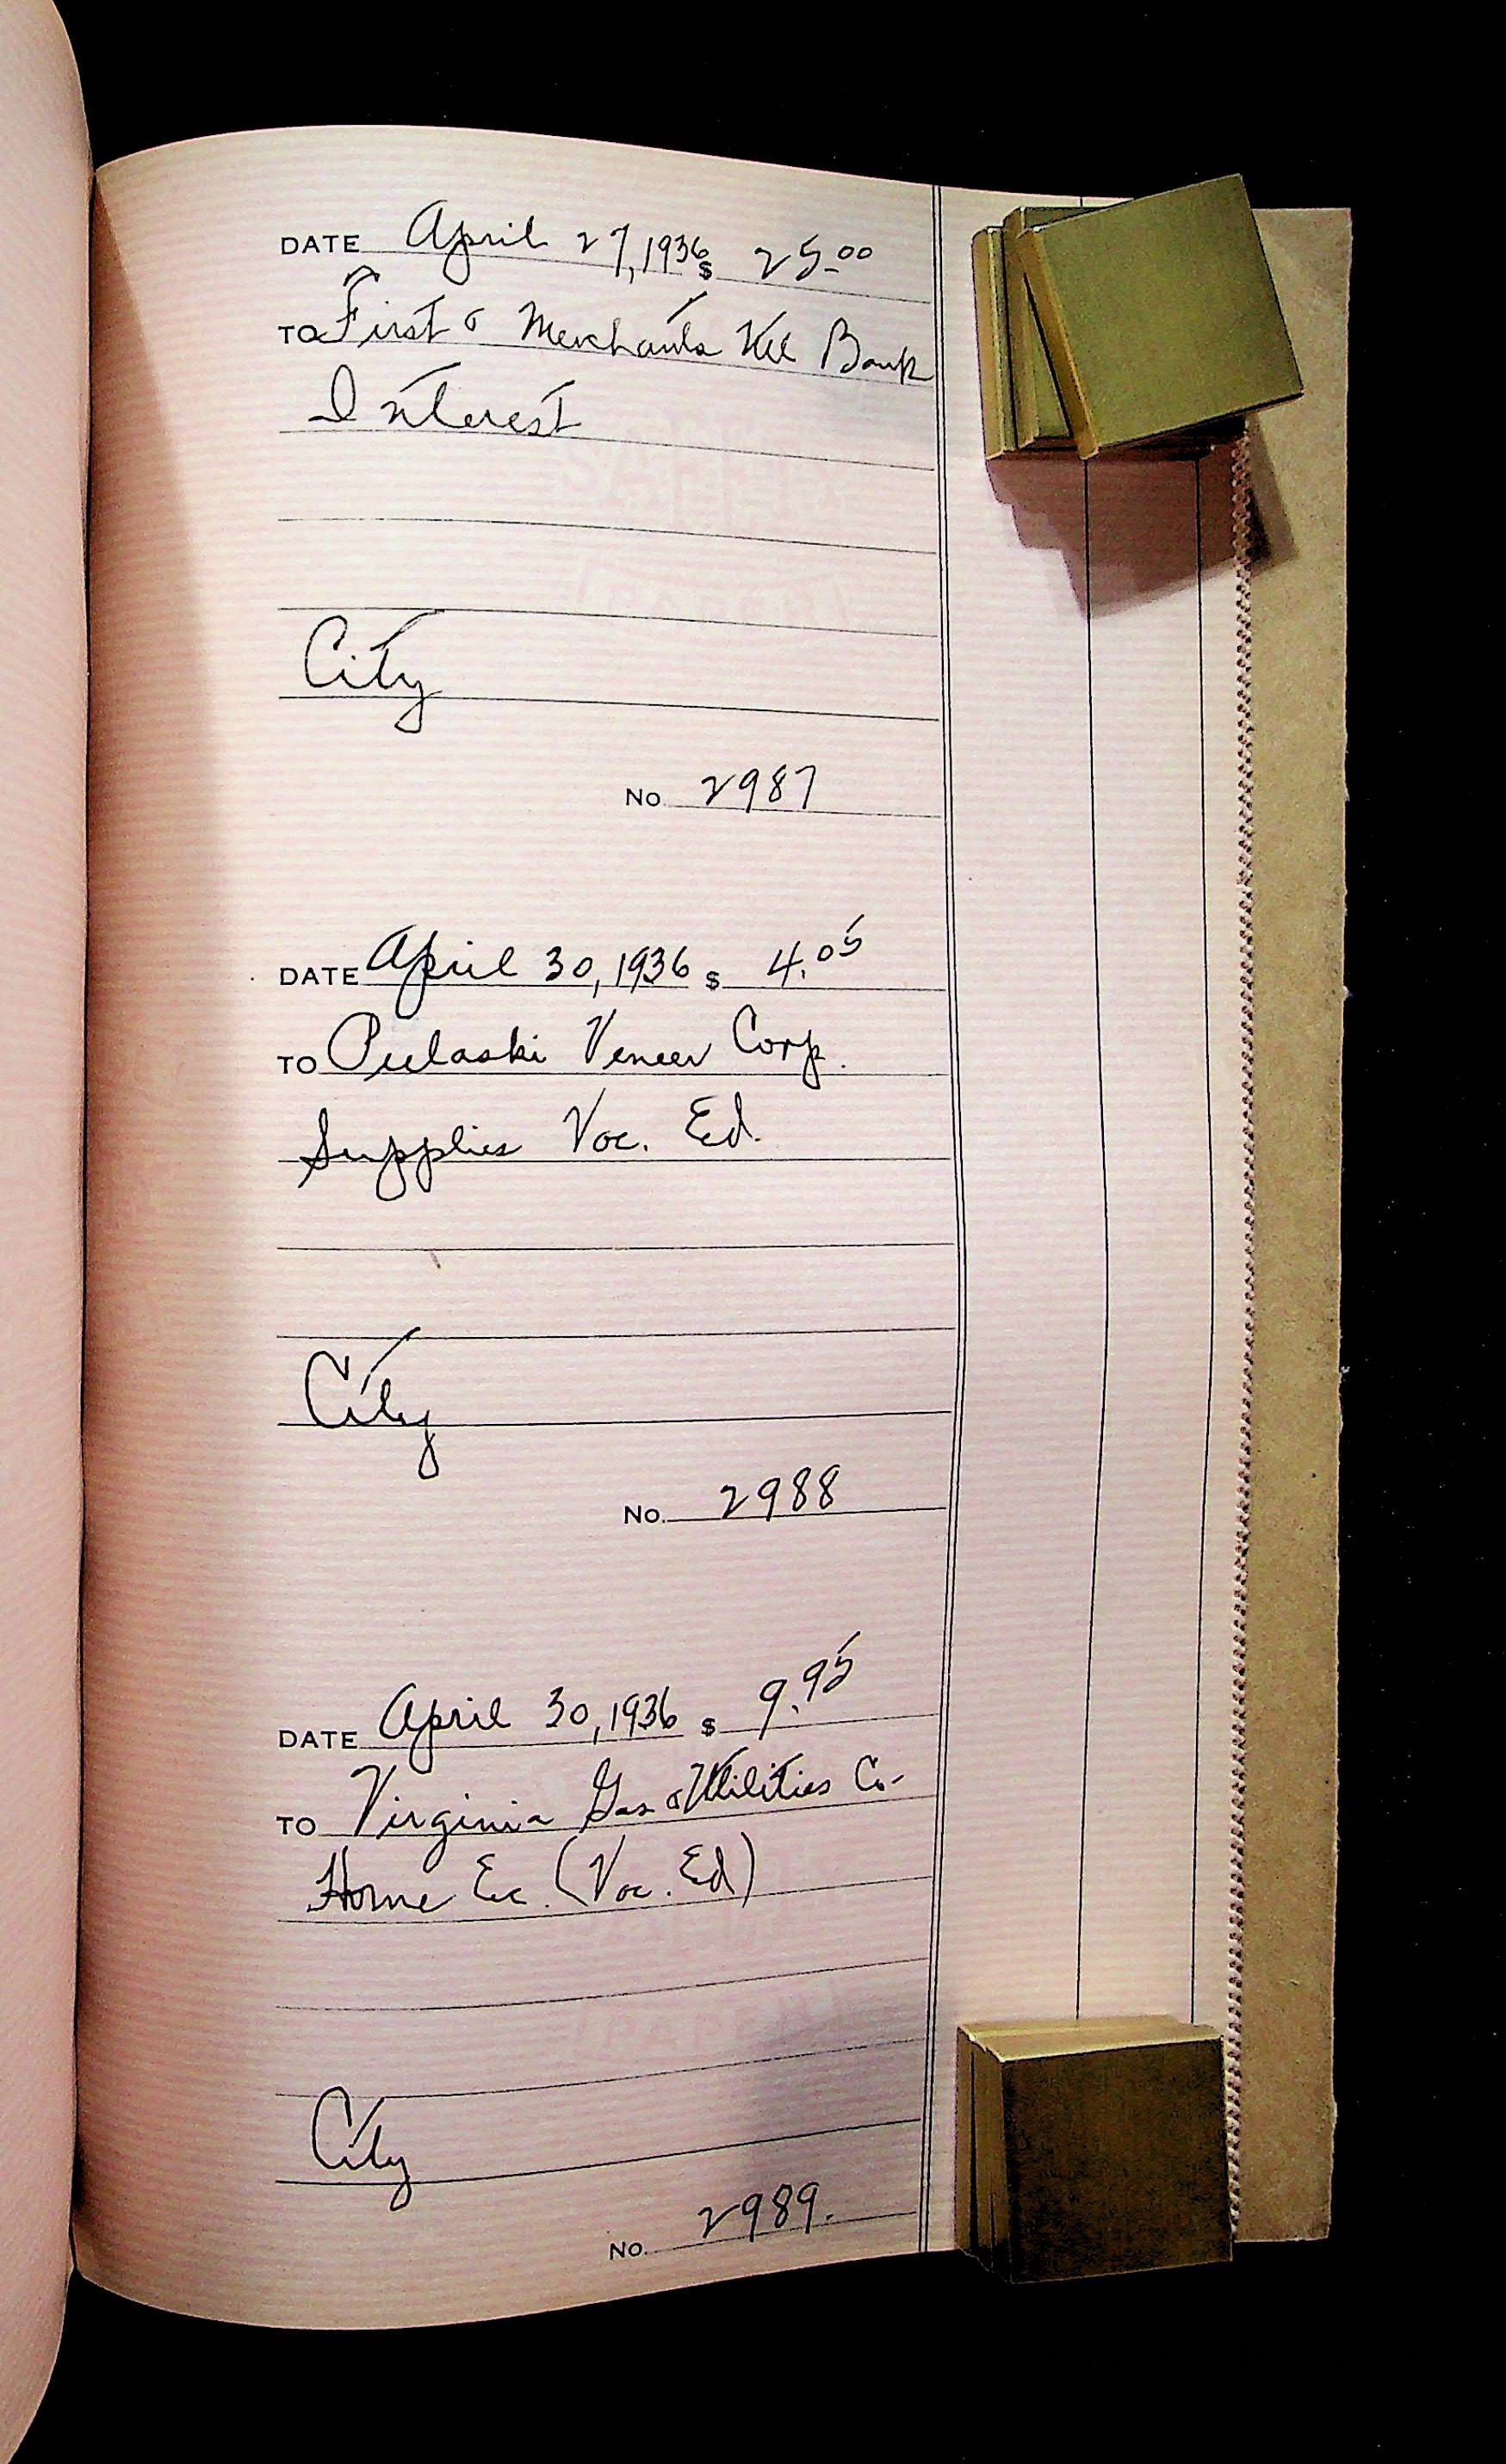 DATE April 27, 1936 $ 25.00
TO First & Merchants Bank
Interest
City
No. 2987
DATE April 30, 1936 $ 4.05
TO Pulaski Veneer Corp.
Supplies Voc. Ed.
City
No. 2988
DATE April 30, 1936 $ 9.95
TO Virginia Gas & Utilities Co.
Home Ec. (Voc. Ed)
City
No. 2989.